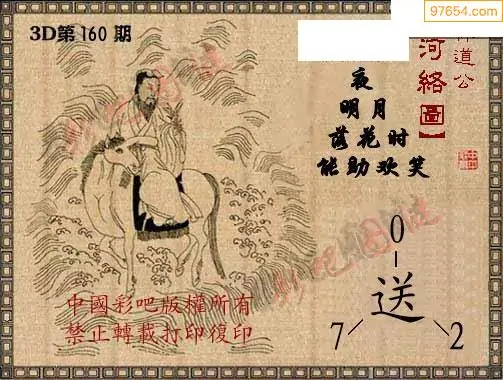 97654.com
3D第160期
道公
河絡圖】
夜
明月
落花时
能助欢笑
彩吧圖说
0
送
7
2
中國彩吧版權所有
禁止轉載打印復印